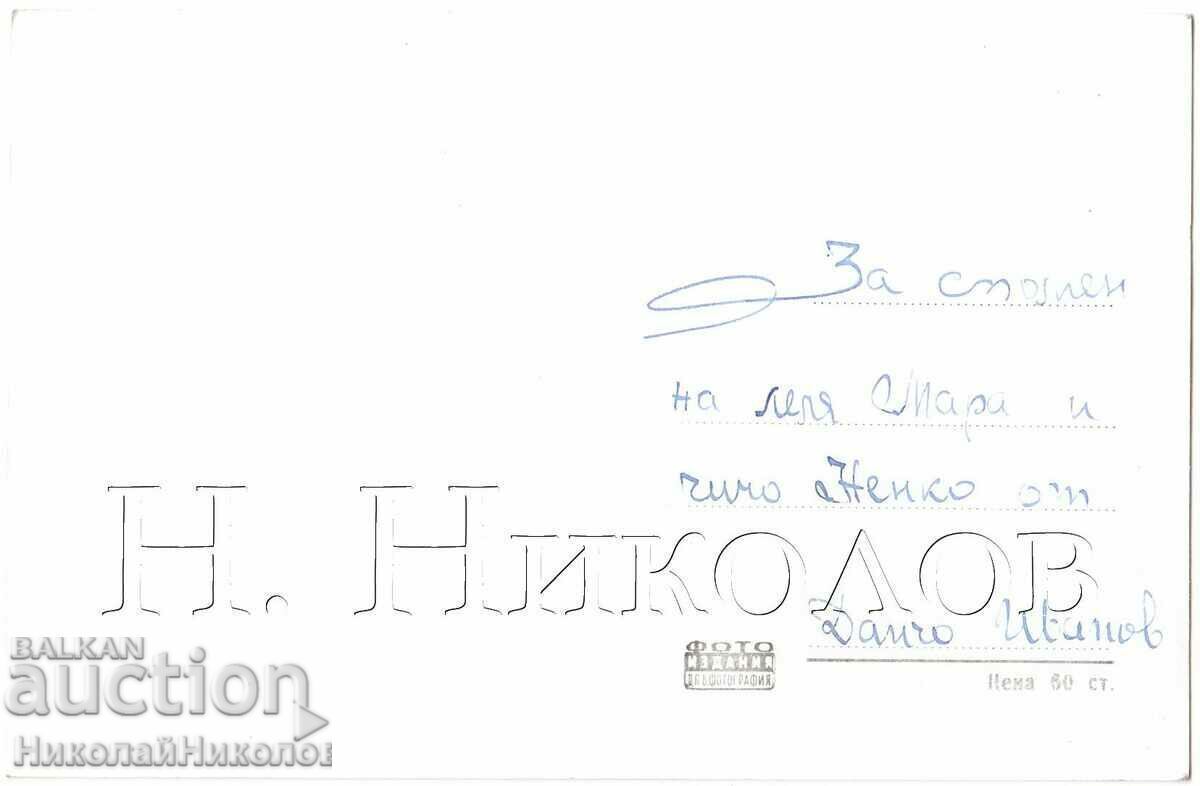 За спомен
на леля Мара и
чичо Ненко от
Н. Николов
Данчо Иванов
ФОТО
ИЗДАНИЯ
ДП Б.ФОТОГРАФИЯ
Цена 60 ст.
BALKAN
auction
НиколайНиколов